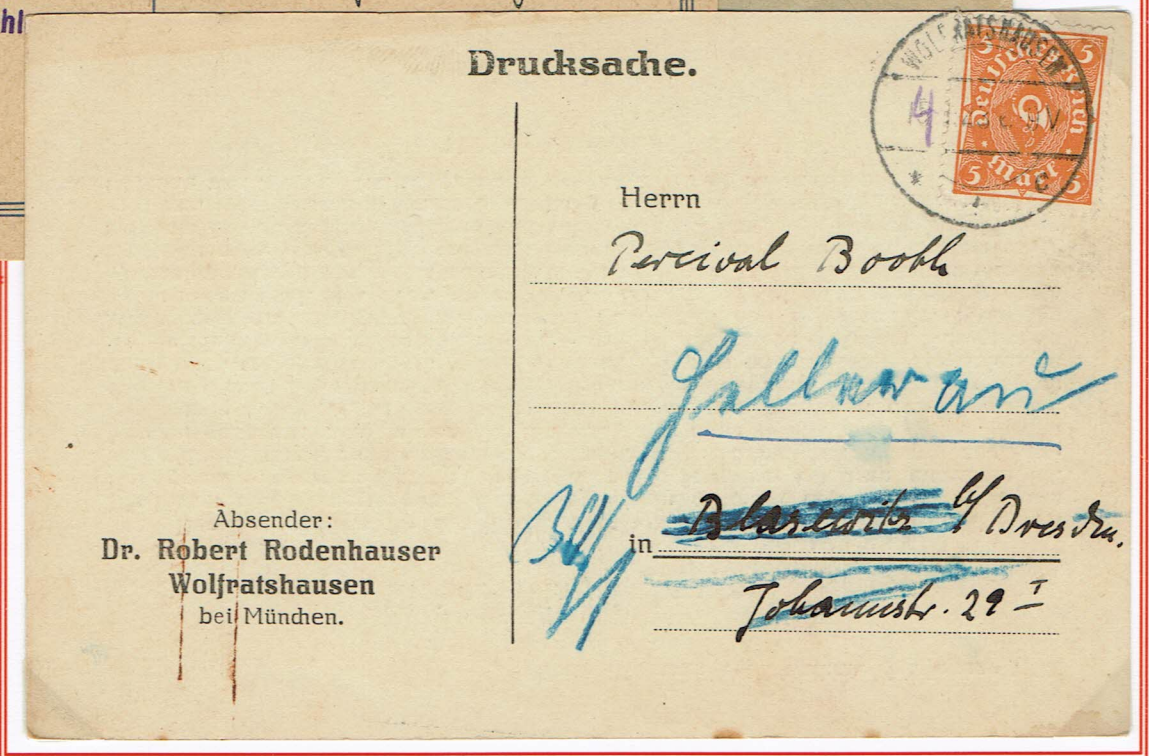 hl
Drucksache.
WOLFRATSHAUSEN
5 5
Deutsches Reich
5
5 Mark 5
4
V
* c
Herrn
Percival Booth
Hellerau
in Blasewitz b/ Dresden.
Johannstr. 29 I
Absender:
Dr. Robert Rodenhauser
Wolfratshausen
bei München.